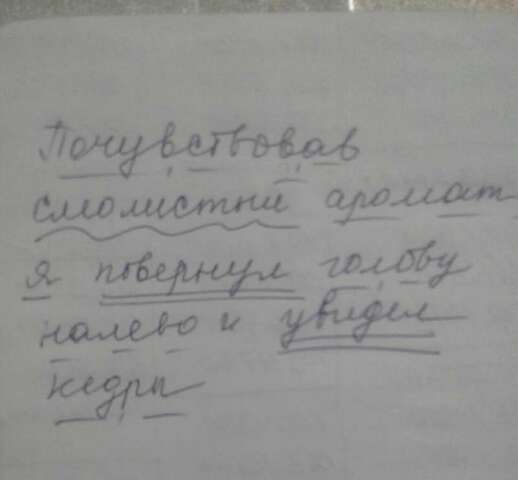 Почувствовав
смолистый аромат
я повернул голову
налево и увидел
кедры